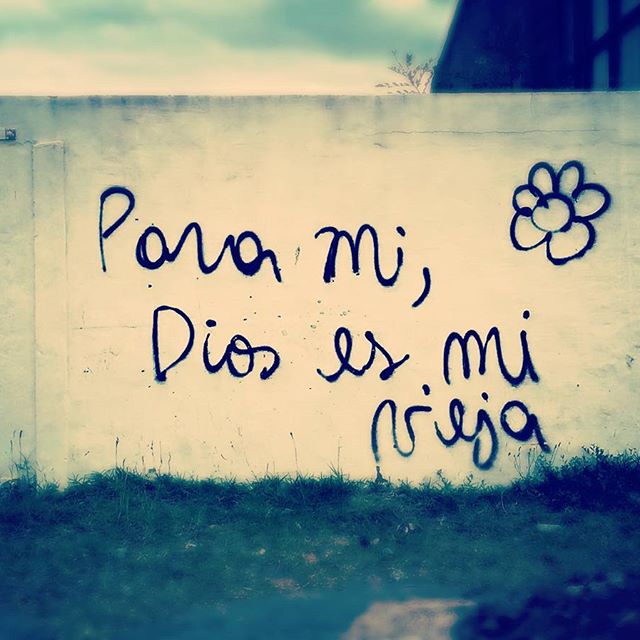 Para mi,
Dios es mi
vieja